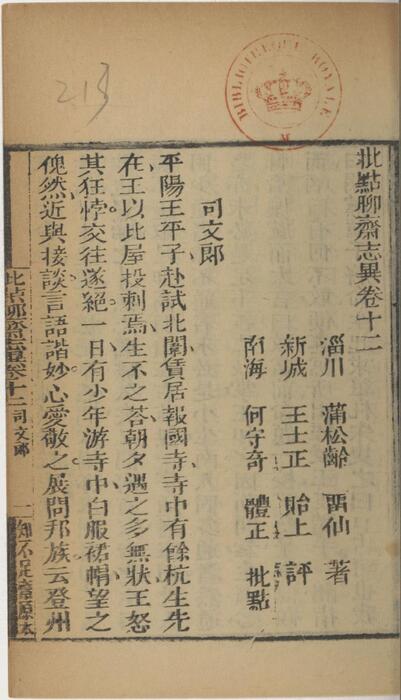 213
BIBLIOTHEQUE ROYALE
批點聊齋志異卷十二
淄川 蒲松齡 畱仙 著
新城 王士正 貽上 評
南海 何守奇 體正 批點
司文郎
平陽王平子赴試北闈賃居報國寺寺中有餘杭生先
在王以比屋投刺焉生不之荅朝夕遇之多無狀王怒
其狂悖交往遂絕一日有少年游寺中白服裙帽望之
傀然近與接談言語諧妙心愛敬之展問邦族云登州
批點聊齋志異卷十二 司文郎 一 知不足齋原本